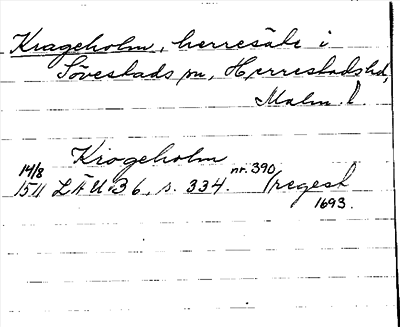 Krageholm, herresäte i
Sövestads sn, Herrestads hd,
Malm. l.
Krogeholm
14/8 1511 LÄU 36, s. 334. nr. 390 /regest 1693.